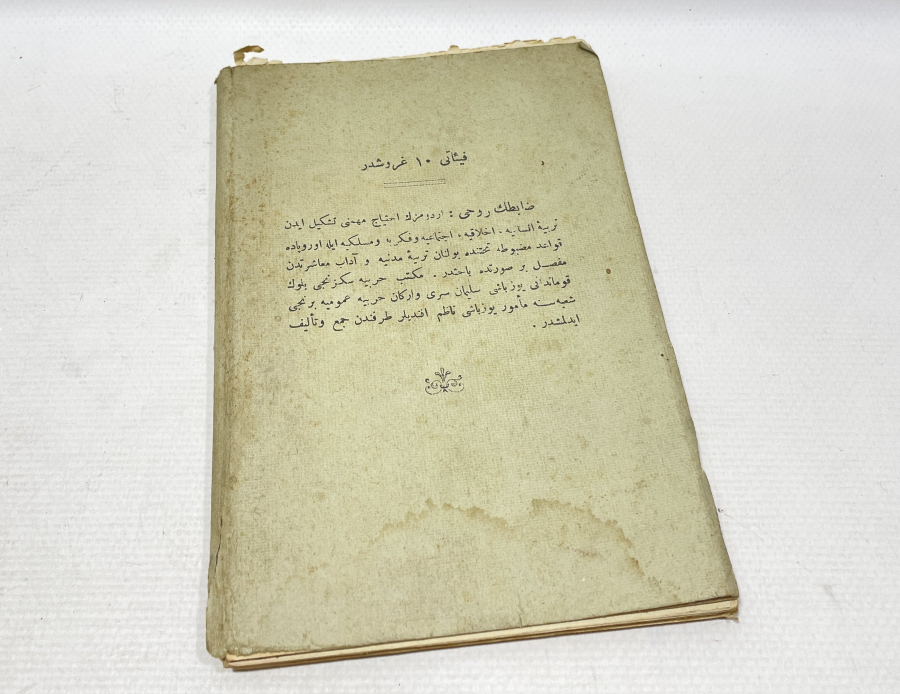 فيئاتی ١٠ غروشدر
ضابطك روحی : اردومزك احتياج مهمنی تشكيل ايدن
تربيهٔ انسانيه ، اخلاقيه ، اجتماعيه و فكريه و مسلكيه ايله اوروپاده
قواعد مضبوطه تحتنده بولنان تربيهٔ مدنيه و آداب معاشرتدن
مفصل بر صورتده باحثدر . مكتب حربيه سكزنجی بلوك
قوماندانی يوزباشی سليمان سری و اركان حربيه عموميه برنجی
شعبه‌سنه مأمور يوزباشی ناظم افنديلر طرفندن جمع و تأليف
ايدلمشدر .